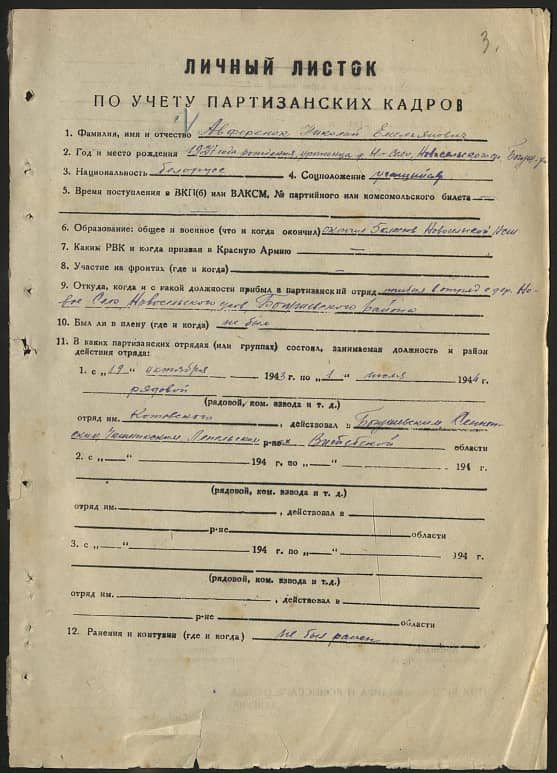 3.
ЛИЧНЫЙ ЛИСТОК
ПО УЧЕТУ ПАРТИЗАНСКИХ КАДРОВ
1. Фамилия, имя и отчество Авференок Николай Емельянович
2. Год и место рождения 1927 года рождения, д. Н-Село, Новосельского
3. Национальность белорус 4. Соцположение учащийся
5. Время поступления в ВКП(б) или ВЛКСМ, № партийного или комсомольского билета —
6. Образование: общее и военное (что и когда окончил) окончил 5 классов Новосельской
7. Каким РВК и когда призван в Красную Армию —
8. Участие на фронтах (где и когда) —
9. Откуда, когда и с какой должности прибыл в партизанский отряд в отряд с дер. Но-
вое Село Новосельского района
10. Был ли в плену (где и когда) не был
11. В каких партизанских отрядах (или группах) состоял, занимаемая должность и район
действия отряда:
1. с „19" октября 1943 г. по „1" июля 1944 г.
рядовой
(рядовой, ком. взвода и т. д.)
отряд им. Котовского, действовал в Сеннен-
ским Лепельском р-не Витебской области
2. с „ " 194 г. по „ " 194 г.
(рядовой, ком. взвода и т. д.)
отряд им. , действовал в
р-не области
3. с „ " 194 г. по „ " 194 г.
(рядовой, ком. взвода и т.д.)
отряд им. , действовал в
р-не области
12. Ранения и контузии (где и когда) не был ранен